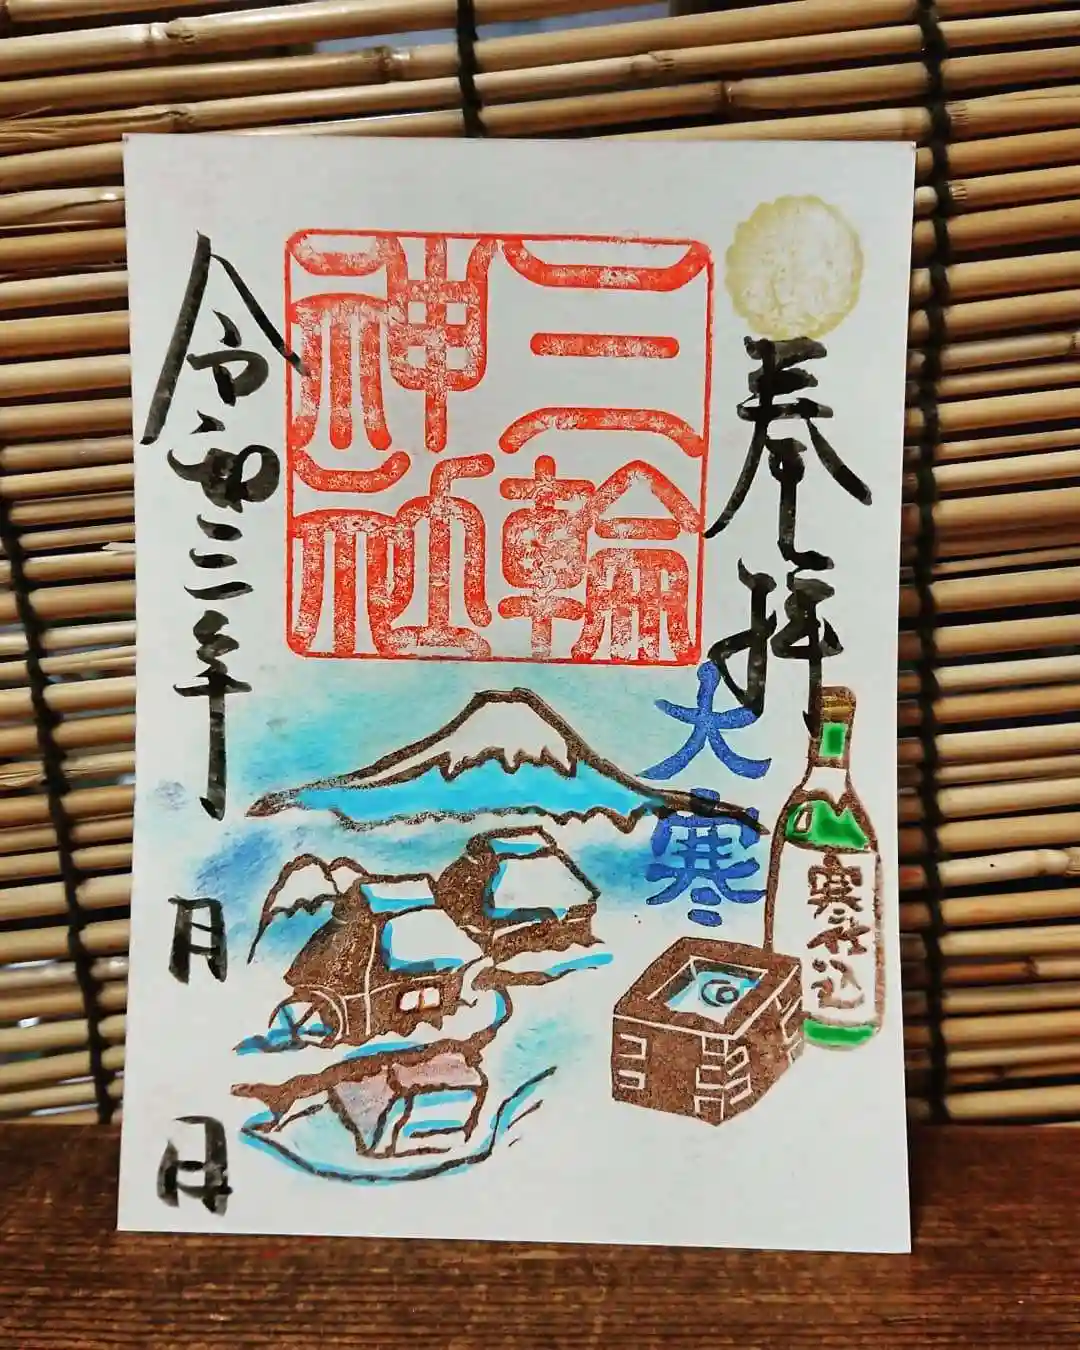 奉拝
大寒
寒仕込
三輪
神社
令和三年
月
日